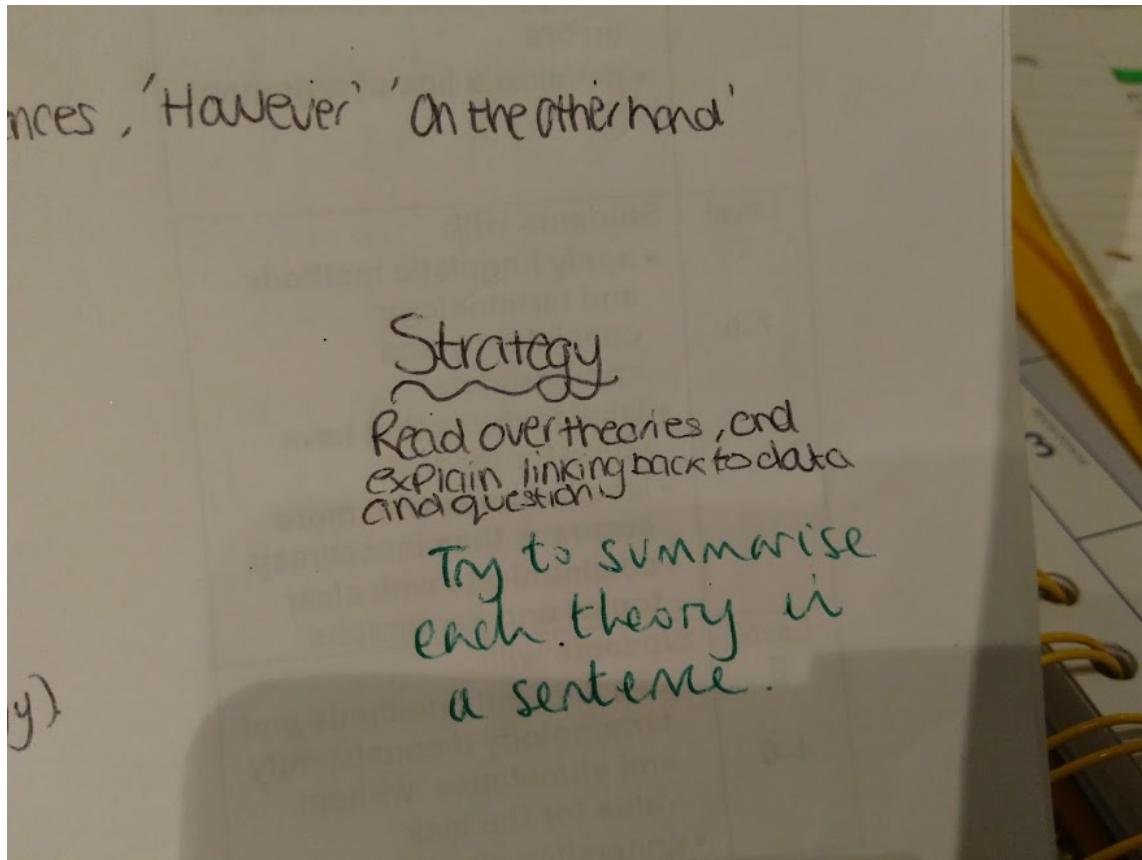 nces, 'However' 'On the other hand'
Strategy
Read over theories, and
explain linking back to data
and question
Try to summarise
each theory in
a sentence.
y)
3